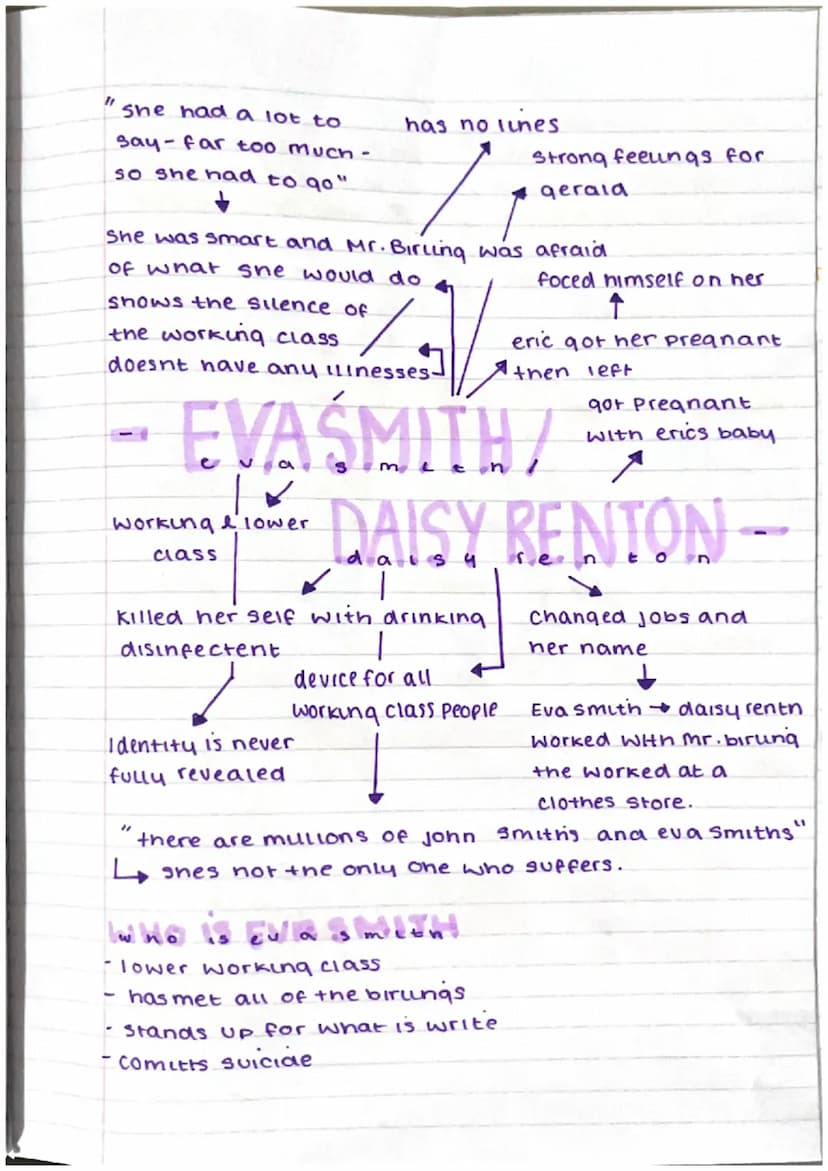 "she had a lot to
say - far too much -
so she had to go"
has no lines
strong feelings for
gerald
she was smart and Mr. Birling was afraid
of what she would do
shows the silence of
the working class
doesnt have any illnesses
foced himself on her
eric got her pregnant
then left
got pregnant
with erics baby
- EVA SMITH /
eva smith /
DAISY RENTON -
daisy renton
working & lower
class
killed her self with drinking
disinfectent
changed jobs and
her name
device for all
working class people
Eva smith → daisy rentn
worked with mr. birling
the worked at a
clothes store.
Identity is never
fully revealed
"there are millions of john smiths and eva smiths"
↳ shes not the only one who suffers.
WHO IS EVA SMITH
who is eva smith
- lower working class
- has met all of the birlings
- stands up for what is write
- comitts suicide